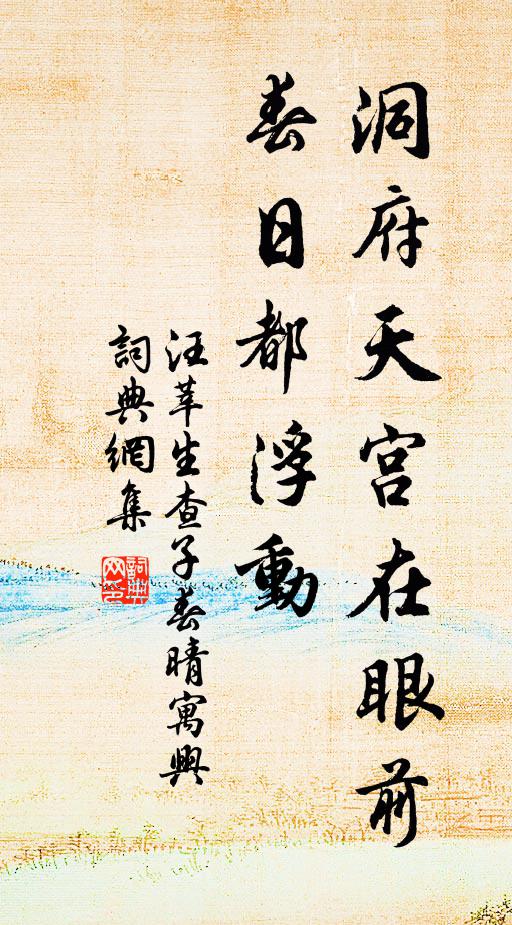 洞府天宮在眼前
春日都浮動
汪莘生查子春晴寓興
詞典網集
詞典網印